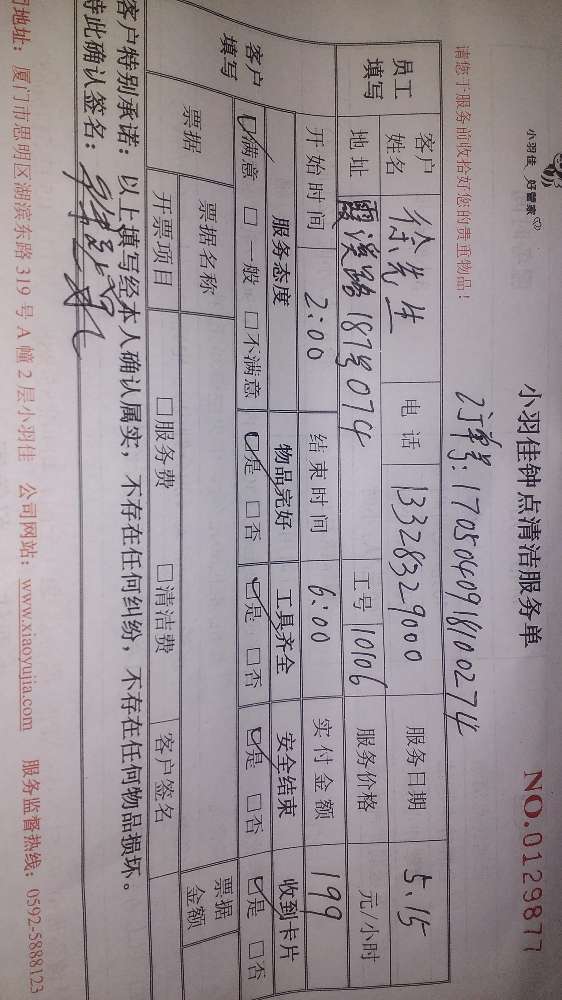 小羽佳 好管家
小羽佳钟点清洁服务单
NO.0129877
请您于服务前收拾好您的贵重物品！
订单号：1705040918100274
员工填写
客户姓名 徐先生 电话 13328329000 服务日期 5.15
地址 霞溪路187号074 工号 10106 服务价格 元/小时
开始时间 2:00 结束时间 6:00 实付金额 199
客户填写
服务态度 物品完好 工具齐全 安全结束 收到卡片
☑满意 □一般 □不满意 ☑是 □否 ☑是 □否 ☑是 □否 ☑是 □否
票据 票据名称 票据金额
开票项目 □服务费 □清洁费 客户签名
客户特别承诺：以上填写经本人确认属实，不存在任何纠纷，不存在任何物品损坏。
特此确认签名：
司地址：厦门市思明区湖滨东路319号A幢2层小羽佳 公司网站：www.xiaoyujia.com 服务监督热线：0592-5888123